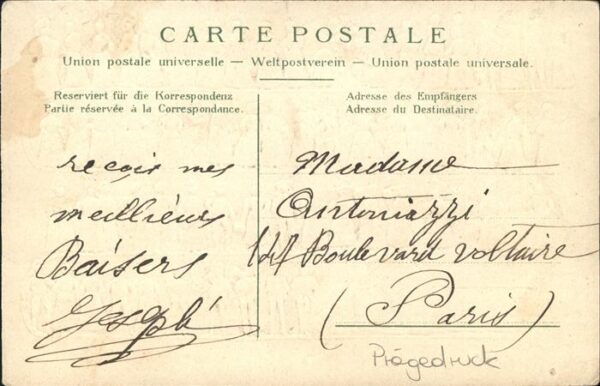 CARTE POSTALE
Union postale universelle — Weltpostverein — Union postale universale.
Reserviert für die Korrespondenz
Partie réservée à la Correspondance.
reçois mes
meilliéurs
Baisers
Joseph
Adresse des Empfängers.
Adresse du Destinataire.
Madame
Antoniazzi
Boulevard Voltaire
(Paris)
Prägedruck